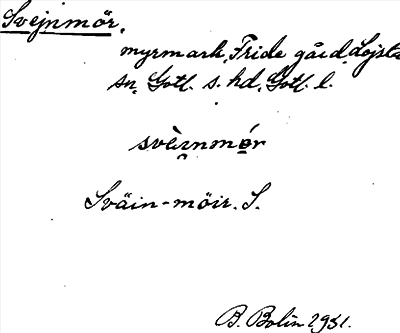 Svejnmör,
myrmark, Fride gård, Lojsta
sn, Gotl. s. hd, Gotl. l.
svèi̯nmœ́r
Sväin-möir. S.
B. Bolin 1931.